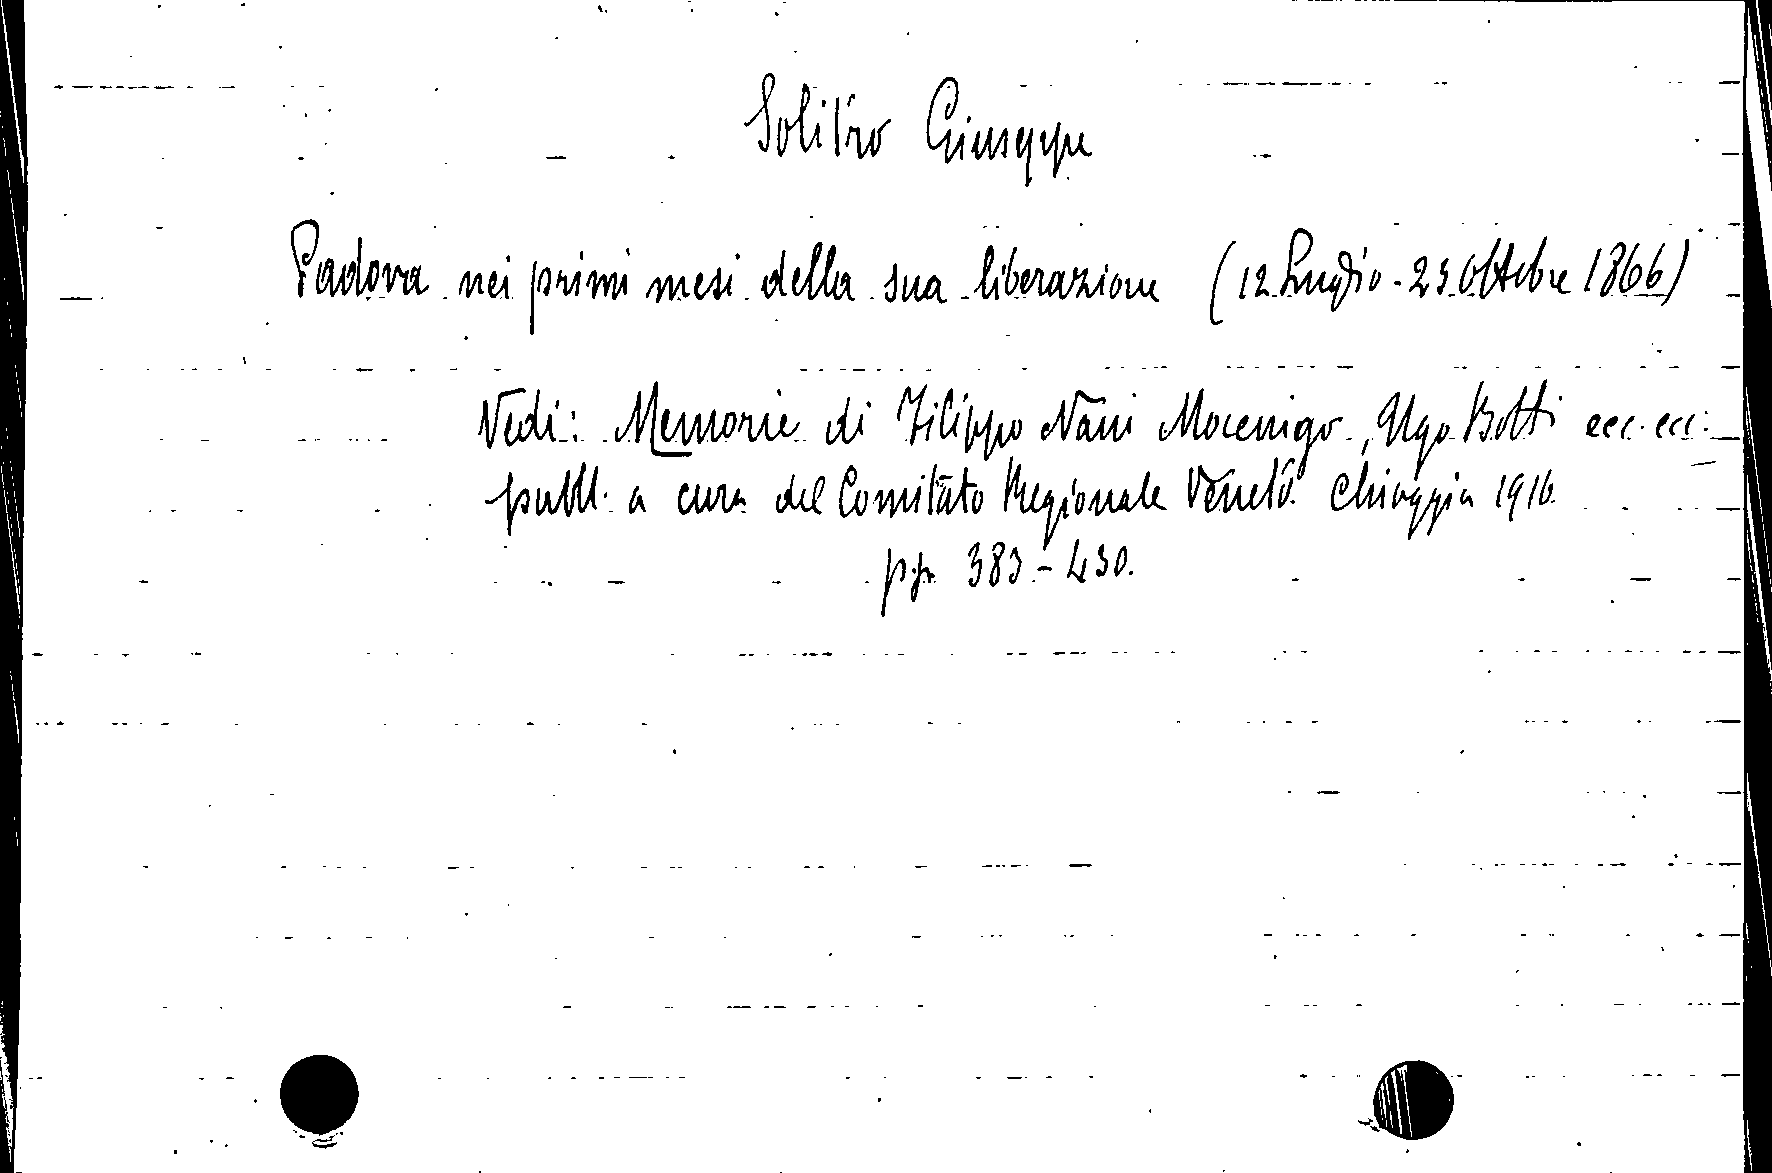 Solitro Giuseppe
Padova nei primi mesi della sua liberazione (12 Luglio - 23 Ottobre 1866)
Vedi: Memorie di Filippo Nani Mocenigo, Ugo Botti ecc. ecc.
pubbl. a cura del Comitato Regionale Veneto. Chioggia 1916.
pp. 383 - 430.